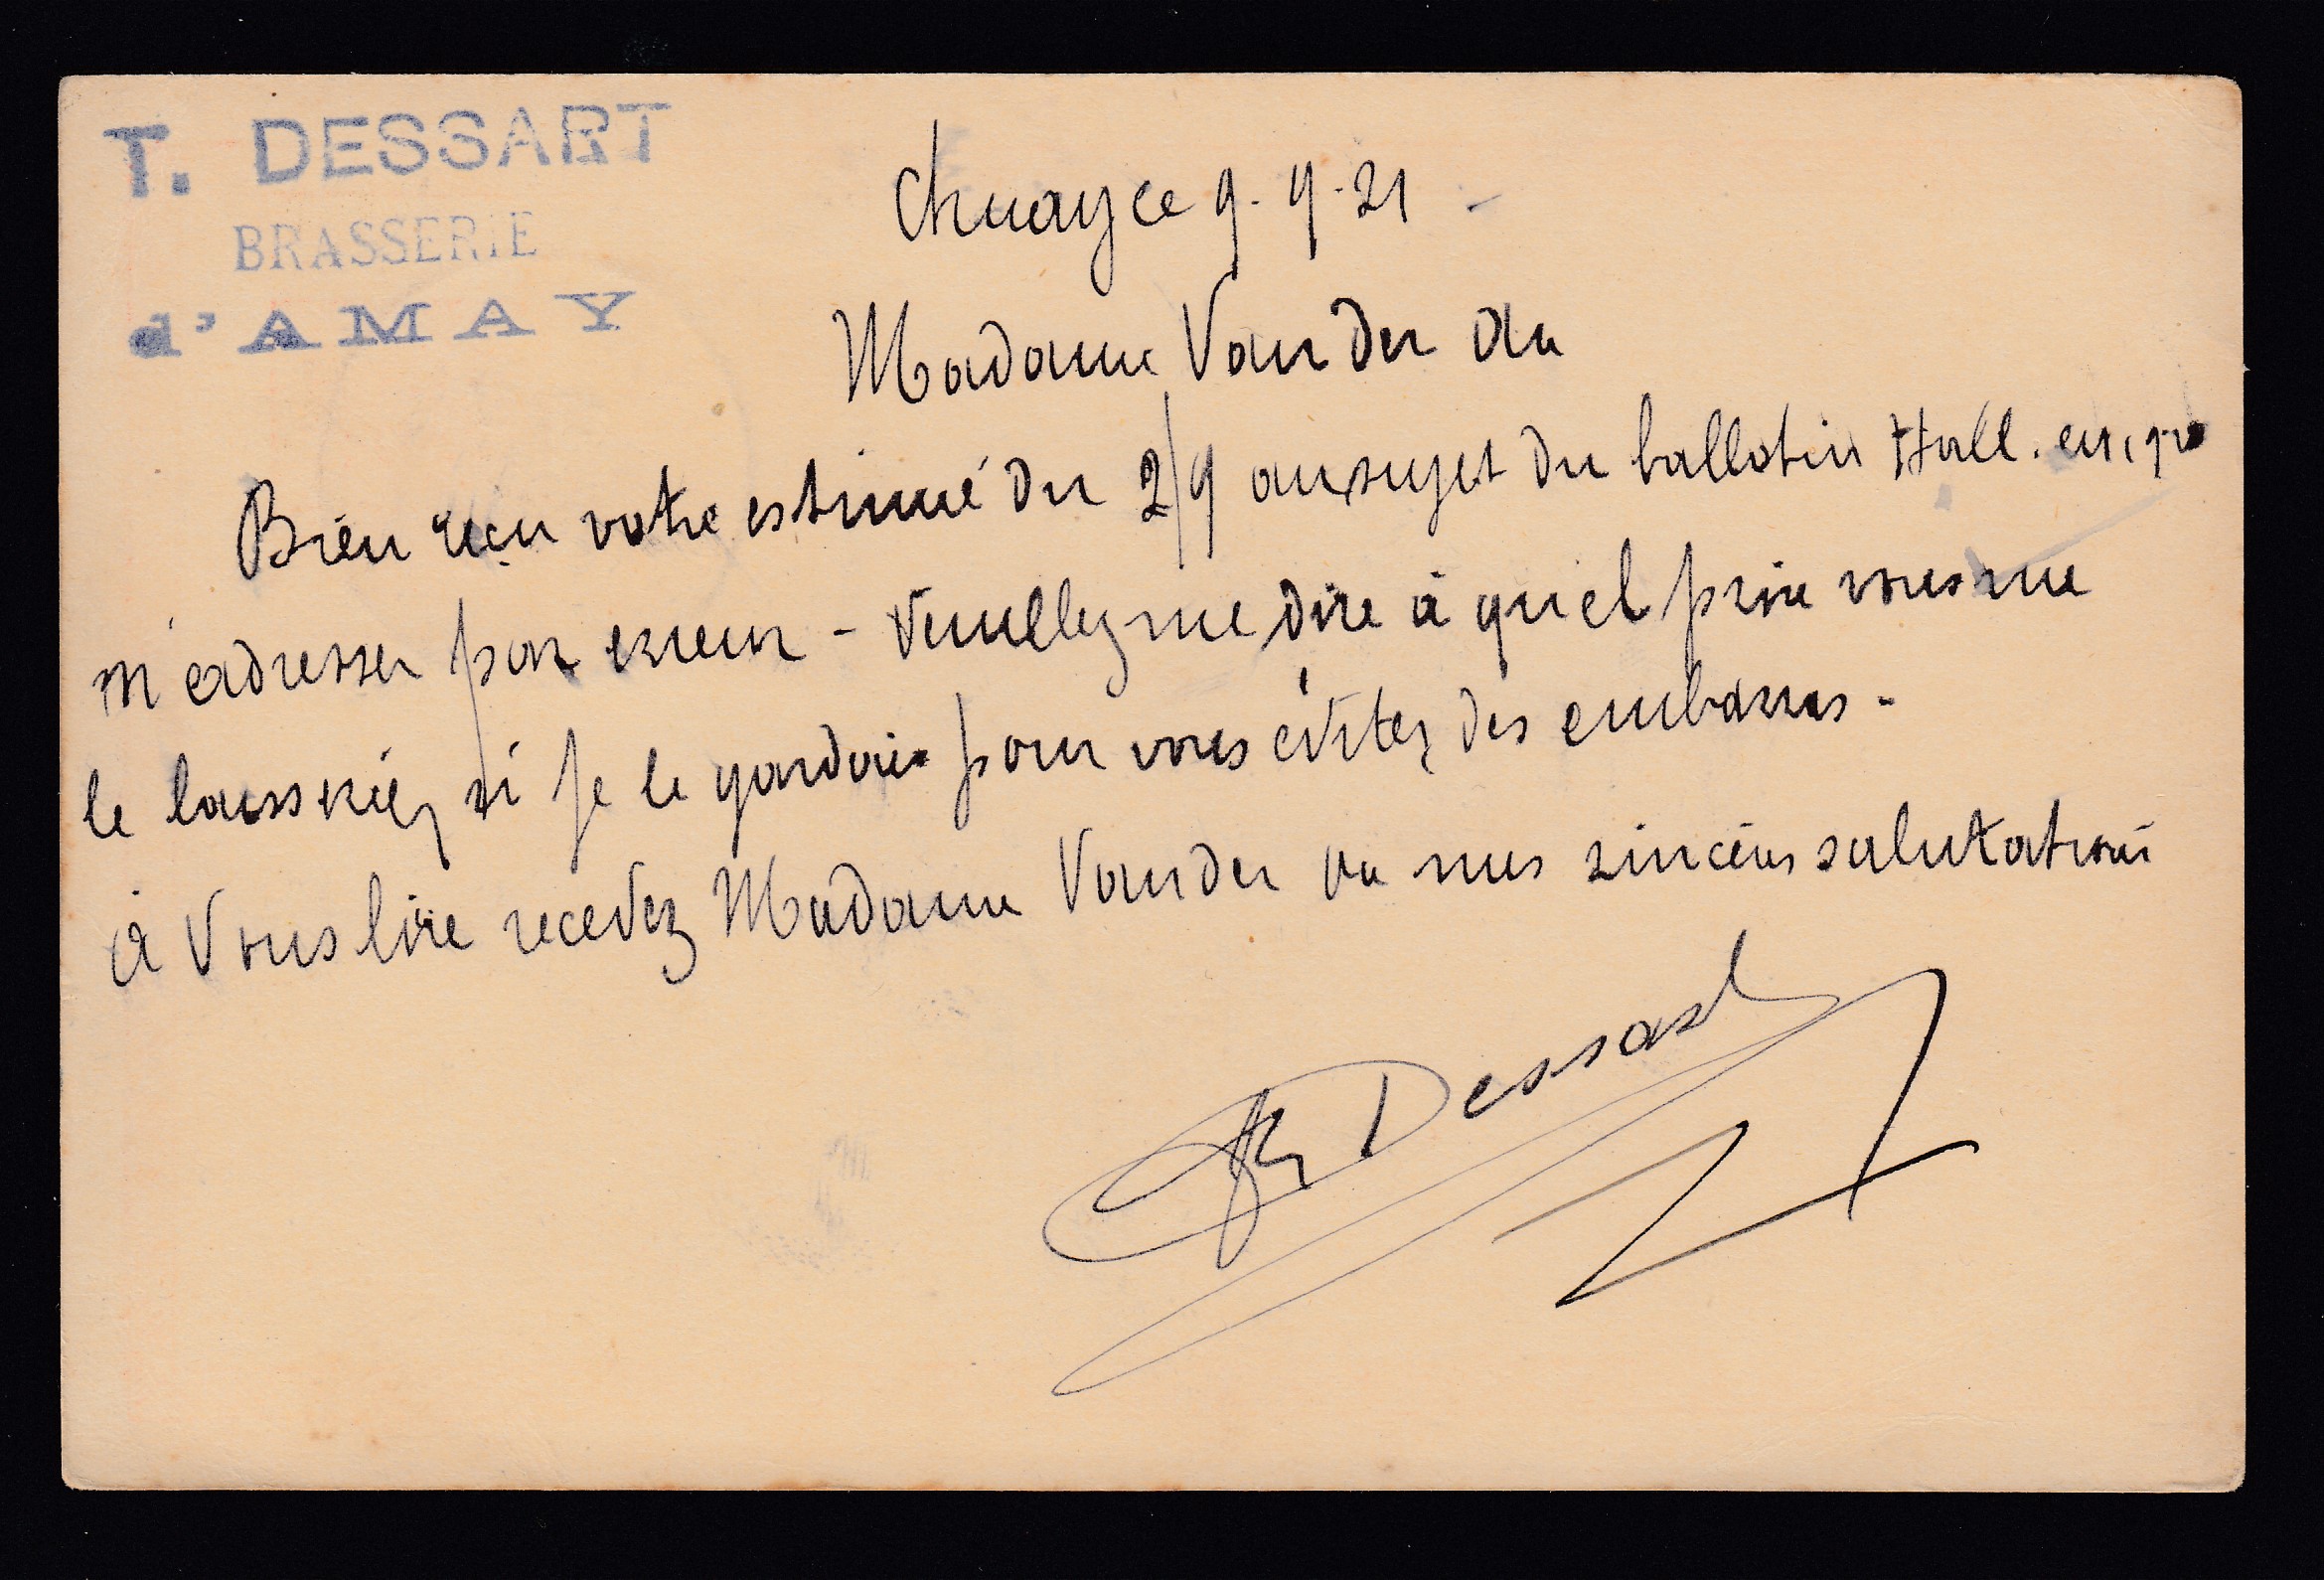 T. DESSART
BRASSERIE
d'AMAY
Amay ce 9-9-21-
Madame Van Der
Bien reçu votre estimé du 2/9 au sujet du ballotin Hall.
m'adresser par erreur - Veuillez me dire à quel prix vous me
le laisseriez si je le gardais pour vous évitez des embarras -
à Vous lire recevez Madame Van der mes sincères salutations
Dessart